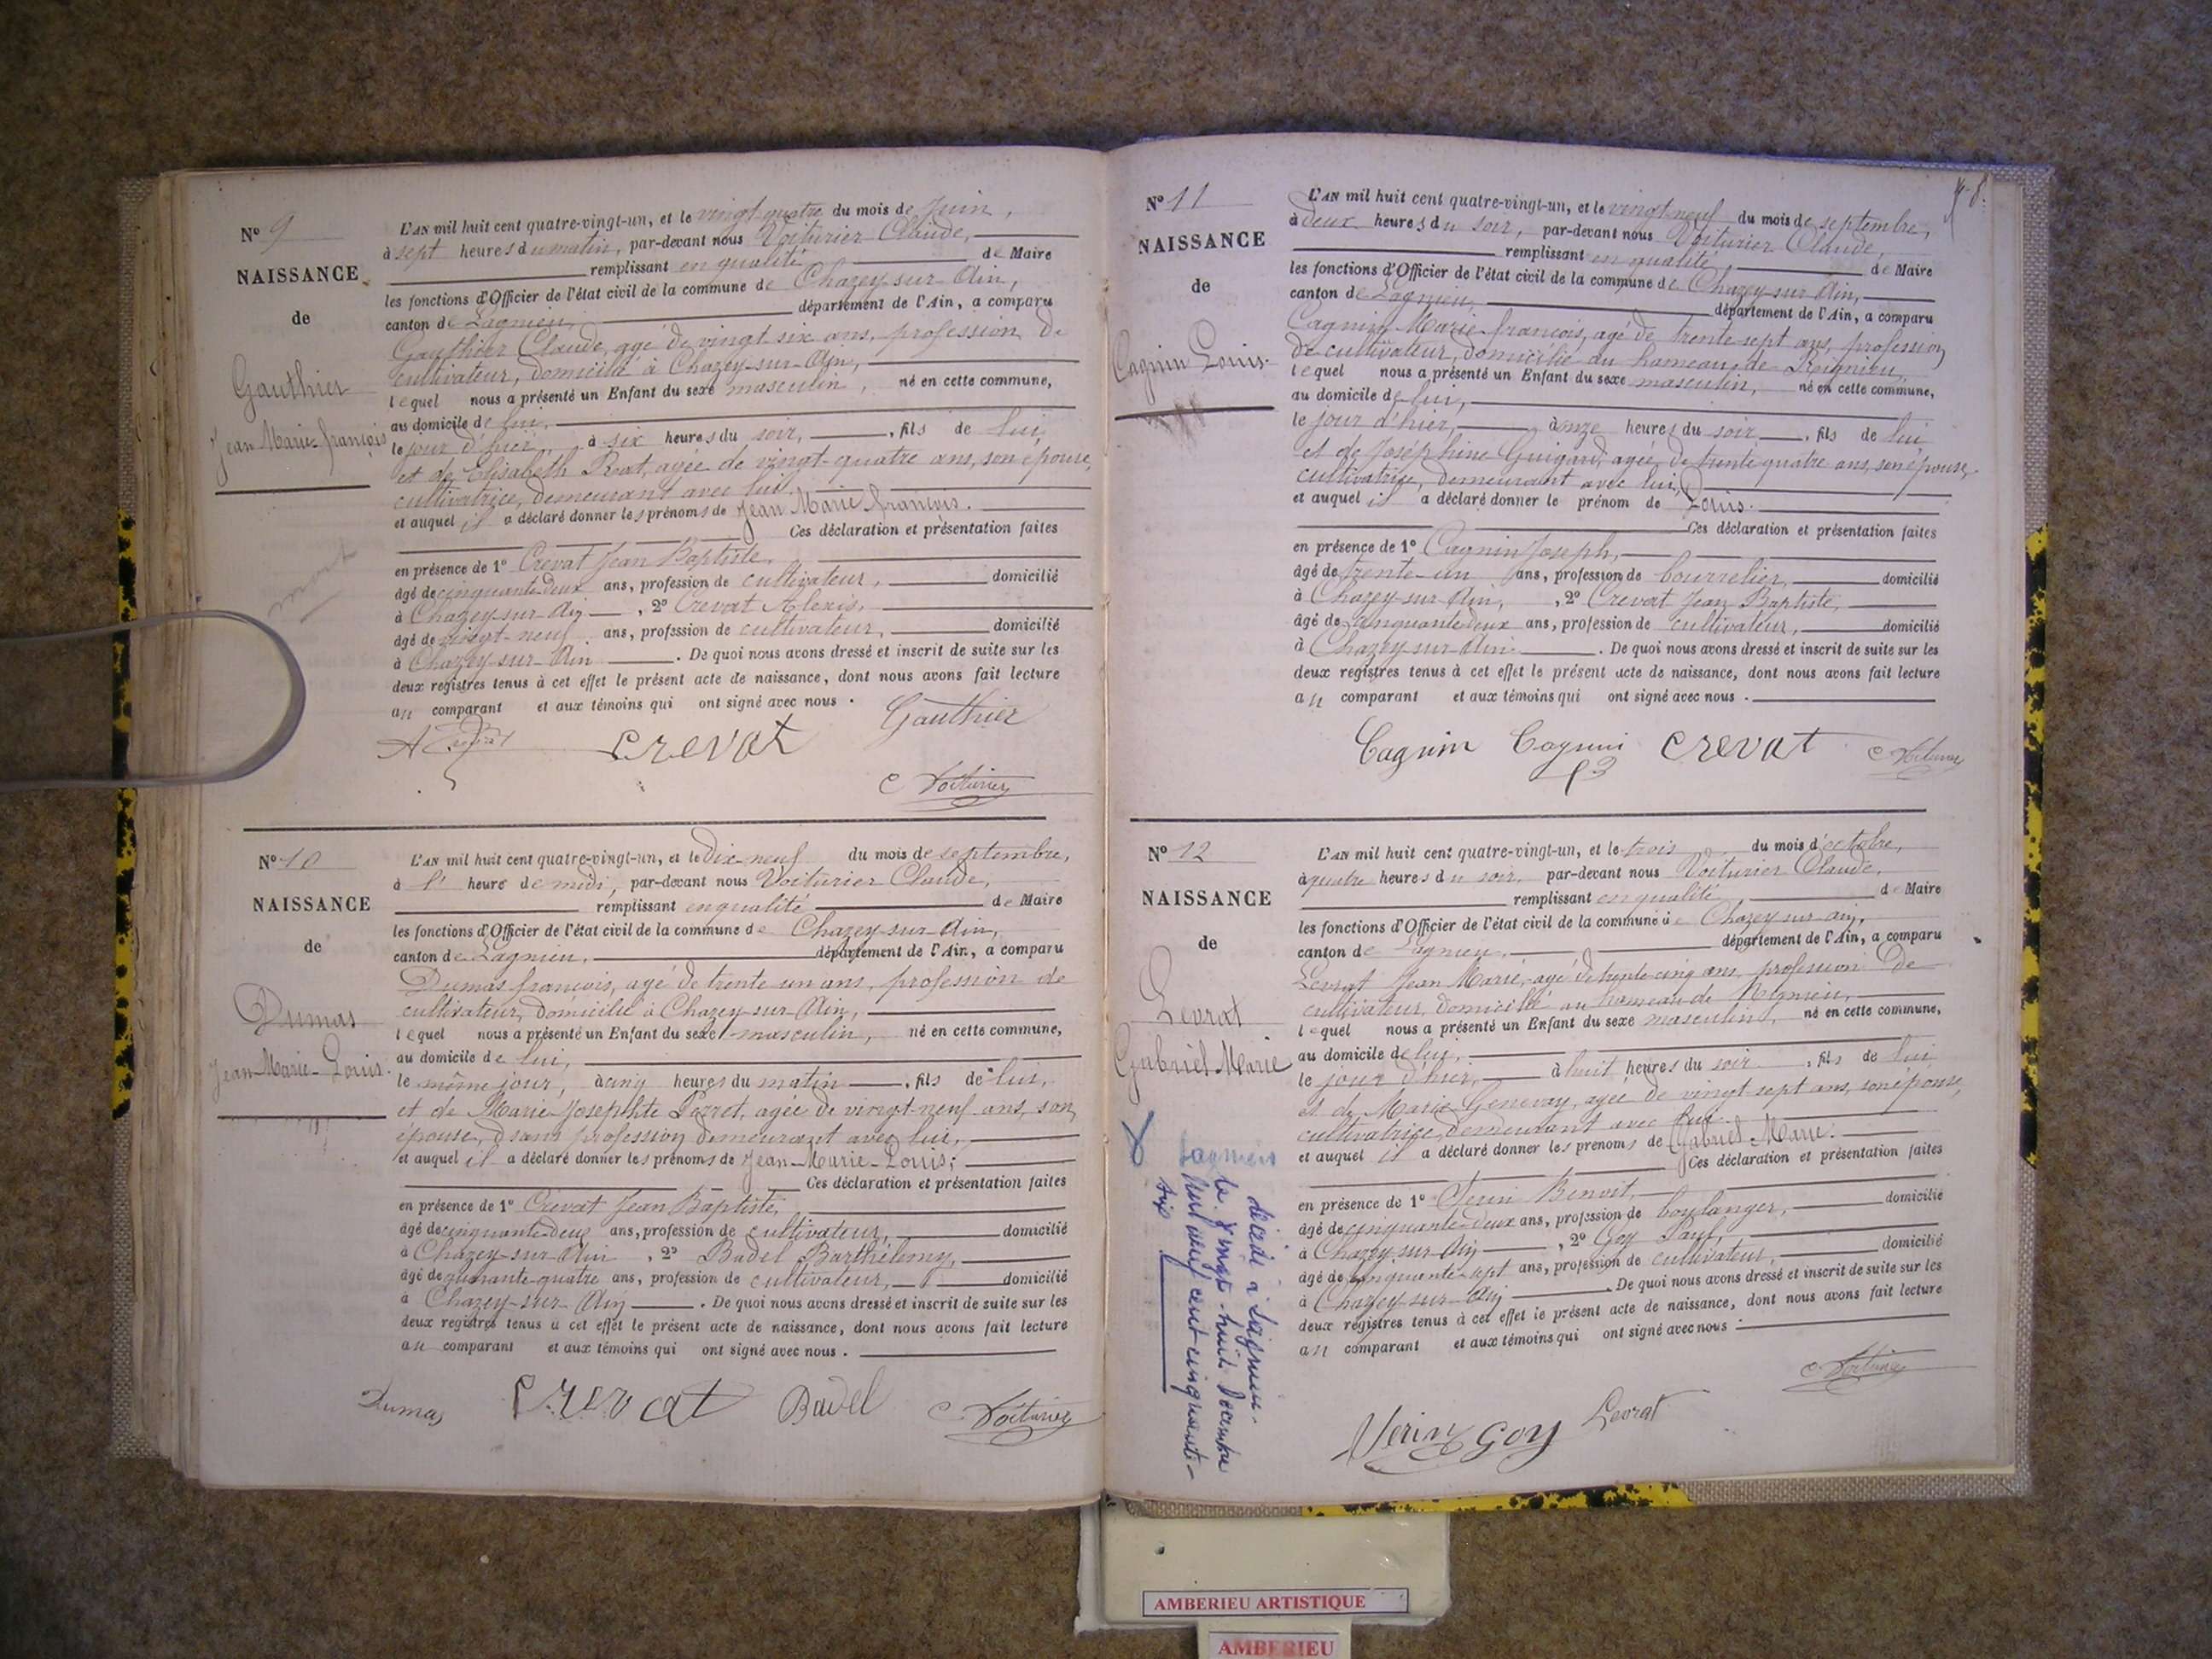 N° 9
NAISSANCE
de
Gauthier
Jean Marie françois
L'AN mil huit cent quatre-vingt-un, et le vingt-quatre du mois de Juin,
à sept heures du matin, par-devant nous Voiturier Claude,
remplissant en qualité de Maire
les fonctions d'Officier de l'état civil de la commune de Chazey-sur-Ain,
canton de Lagnieu, département de l'Ain, a comparu
Gauthier Claude, agé de vingt six ans, profession de
cultivateur, domicilié à Chazey-sur-Ain,
lequel nous a présenté un Enfant du sexe masculin, né en cette commune,
au domicile de lui,
le jour d'hier, à six heures du soir, fils de lui
et de Elisabeth Rat, agée de vingt-quatre ans, son épouse,
cultivatrice, demeurant avec lui.
et auquel il a déclaré donner les prénoms de Jean Marie françois.
Ces déclaration et présentation faites
en présence de 1° Crevat Jean Baptiste,
âgé de cinquante deux ans, profession de cultivateur, domicilié
à Chazey-sur-Ain, 2° Crevat Alexis,
âgé de vingt-neuf ans, profession de cultivateur, domicilié
à Chazey-sur-Ain. De quoi nous avons dressé et inscrit de suite sur les
deux registres tenus à cet effet le présent acte de naissance, dont nous avons fait lecture
au comparant et aux témoins qui ont signé avec nous.
Gauthier
A Crevat Crevat
C Voiturier
mort
N° 10
NAISSANCE
de
Dumas
Jean-Marie-Louis.
L'AN mil huit cent quatre-vingt-un, et le Dix-neuf du mois de septembre,
à l' heure de midi, par-devant nous Voiturier Claude,
remplissant en qualité de Maire
les fonctions d'Officier de l'état civil de la commune de Chazey-sur-Ain,
canton de Lagnieu, département de l'Ain, a comparu
Dumas françois, agé de trente un ans, profession de
cultivateur, domicilié à Chazey-sur-Ain,
lequel nous a présenté un Enfant du sexe masculin, né en cette commune,
au domicile de lui,
le même jour, à cinq heures du matin, fils de lui,
et de Marie Josephte Perret, agée de vingt-neuf ans, son
épouse, sans profession demeurant avec lui,
et auquel il a déclaré donner les prénoms de Jean-Marie-Louis;
Ces déclaration et présentation faites
en présence de 1° Crevat Jean Baptiste,
âgé de cinquante-deux ans, profession de cultivateur, domicilié
à Chazey-sur-Ain, 2° Badel Barthélemy,
âgé de quarante-quatre ans, profession de cultivateur, domicilié
à Chazey-sur-Ain. De quoi nous avons dressé et inscrit de suite sur les
deux registres tenus à cet effet le présent acte de naissance, dont nous avons fait lecture
au comparant et aux témoins qui ont signé avec nous.
Dumas Crevat Badel C. Voiturier
N° 11
NAISSANCE
de
Cagnin Louis.
L'AN mil huit cent quatre-vingt-un, et le vingt neuf du mois de septembre,
à deux heures du soir, par-devant nous Voiturier Claude,
remplissant en qualité de Maire
les fonctions d'Officier de l'état civil de la commune de Chazey-sur-Ain,
canton de Lagnieu, département de l'Ain, a comparu
Cagnin Marie-françois, agé de trente sept ans, profession
de cultivateur, domicilié au hameau de Rignieu,
lequel nous a présenté un Enfant du sexe masculin, né en cette commune,
au domicile de lui,
le jour d'hier, à onze heures du soir, fils de lui
et de Joséphine Guigard, agée de trente quatre ans, son épouse,
cultivatrice, demeurant avec lui,
et auquel il a déclaré donner le prénom de Louis.
Ces déclaration et présentation faites
en présence de 1° Cagnin Joseph,
âgé de trente-un ans, profession de bourrelier, domicilié
à Chazey-sur-Ain, 2° Crevat Jean Baptiste,
âgé de cinquante deux ans, profession de cultivateur, domicilié
à Chazey-sur-Ain. De quoi nous avons dressé et inscrit de suite sur les
deux registres tenus à cet effet le présent acte de naissance, dont nous avons fait lecture
au comparant et aux témoins qui ont signé avec nous.
Cagnin Cagnin Crevat C Voiturier
N° 12
NAISSANCE
de
Levrat
Gabriel Marie
L'AN mil huit cent quatre-vingt-un, et le trois du mois d'octobre,
à quatre heures du soir, par-devant nous Voiturier Claude,
remplissant en qualité de Maire
les fonctions d'Officier de l'état civil de la commune de Chazey-sur-ain,
canton de Lagnieu, département de l'Ain, a comparu
Levrat Jean Marie, agé de trente cinq ans, profession De
cultivateur, domicilié au hameau de Rignieu,
lequel nous a présenté un Enfant du sexe masculin, né en cette commune,
au domicile de lui,
le jour d'hier, à huit heures du soir, fils de lui
et de Marie Genevay, agée de vingt sept ans, son épouse,
cultivatrice, demeurant avec lui.
et auquel il a déclaré donner les prénoms de Gabriel Marie.
Ces déclaration et présentation faites
en présence de 1° Benoit,
âgé de cinquante-deux ans, profession de boulanger, domicilié
à Chazey-sur-Ain, 2° Goy Paul,
âgé de cinquante-sept ans, profession de cultivateur, domicilié
à Chazey-sur-Ain. De quoi nous avons dressé et inscrit de suite sur les
deux registres tenus à cet effet le présent acte de naissance, dont nous avons fait lecture
au comparant et aux témoins qui ont signé avec nous.
C. Voiturier
Goy Levrat
Lagnieu
décédé à Lagnieu.
le vingt-huit Décembre
mil neuf cent cinquante-
six
AMBERIEU ARTISTIQUE
AMBERIEU